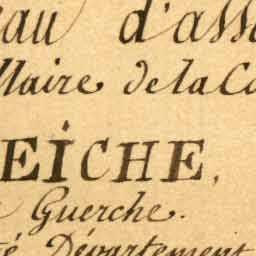 eau d'ass
Maire de la Co
EICHE,
Guerche.
té Département